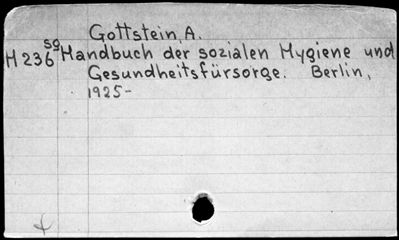 Gottstein, A.
sg
H 236 Handbuch der sozialen Hygiene und
Gesundheitsfürsorge. Berlin,
1925-